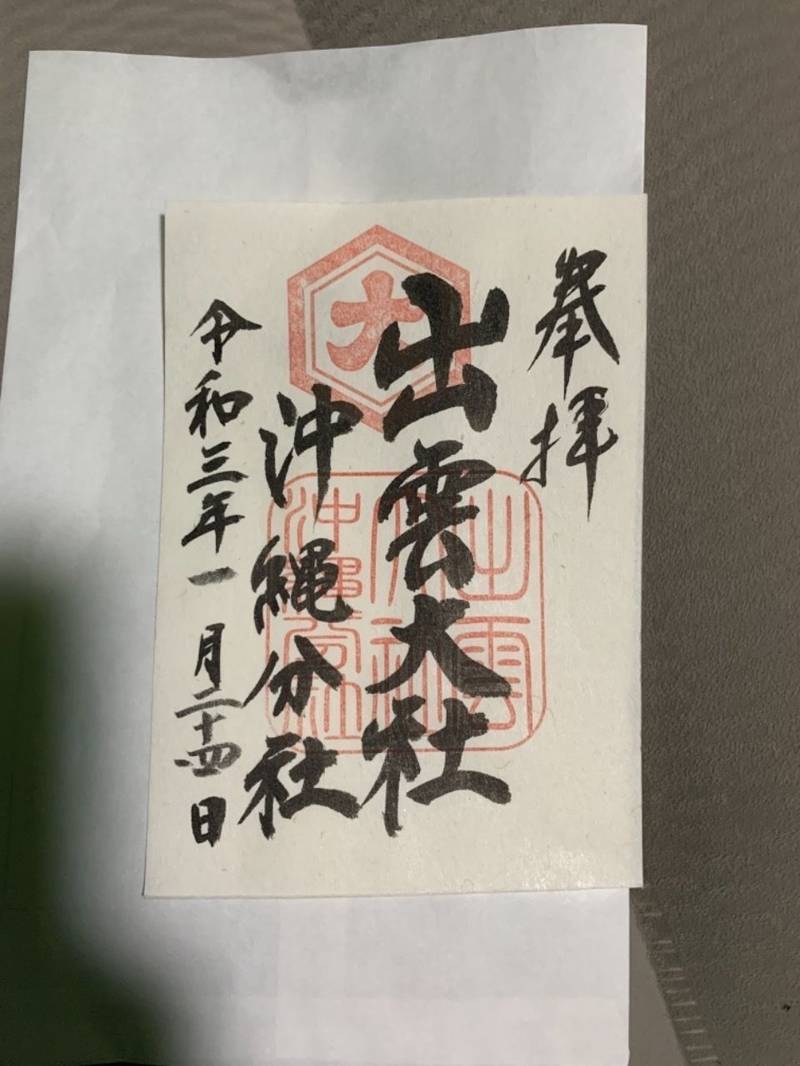 奉拝
出雲大社
沖縄分社
令和三年一月二十四日
大
出雲
大社
沖縄分社